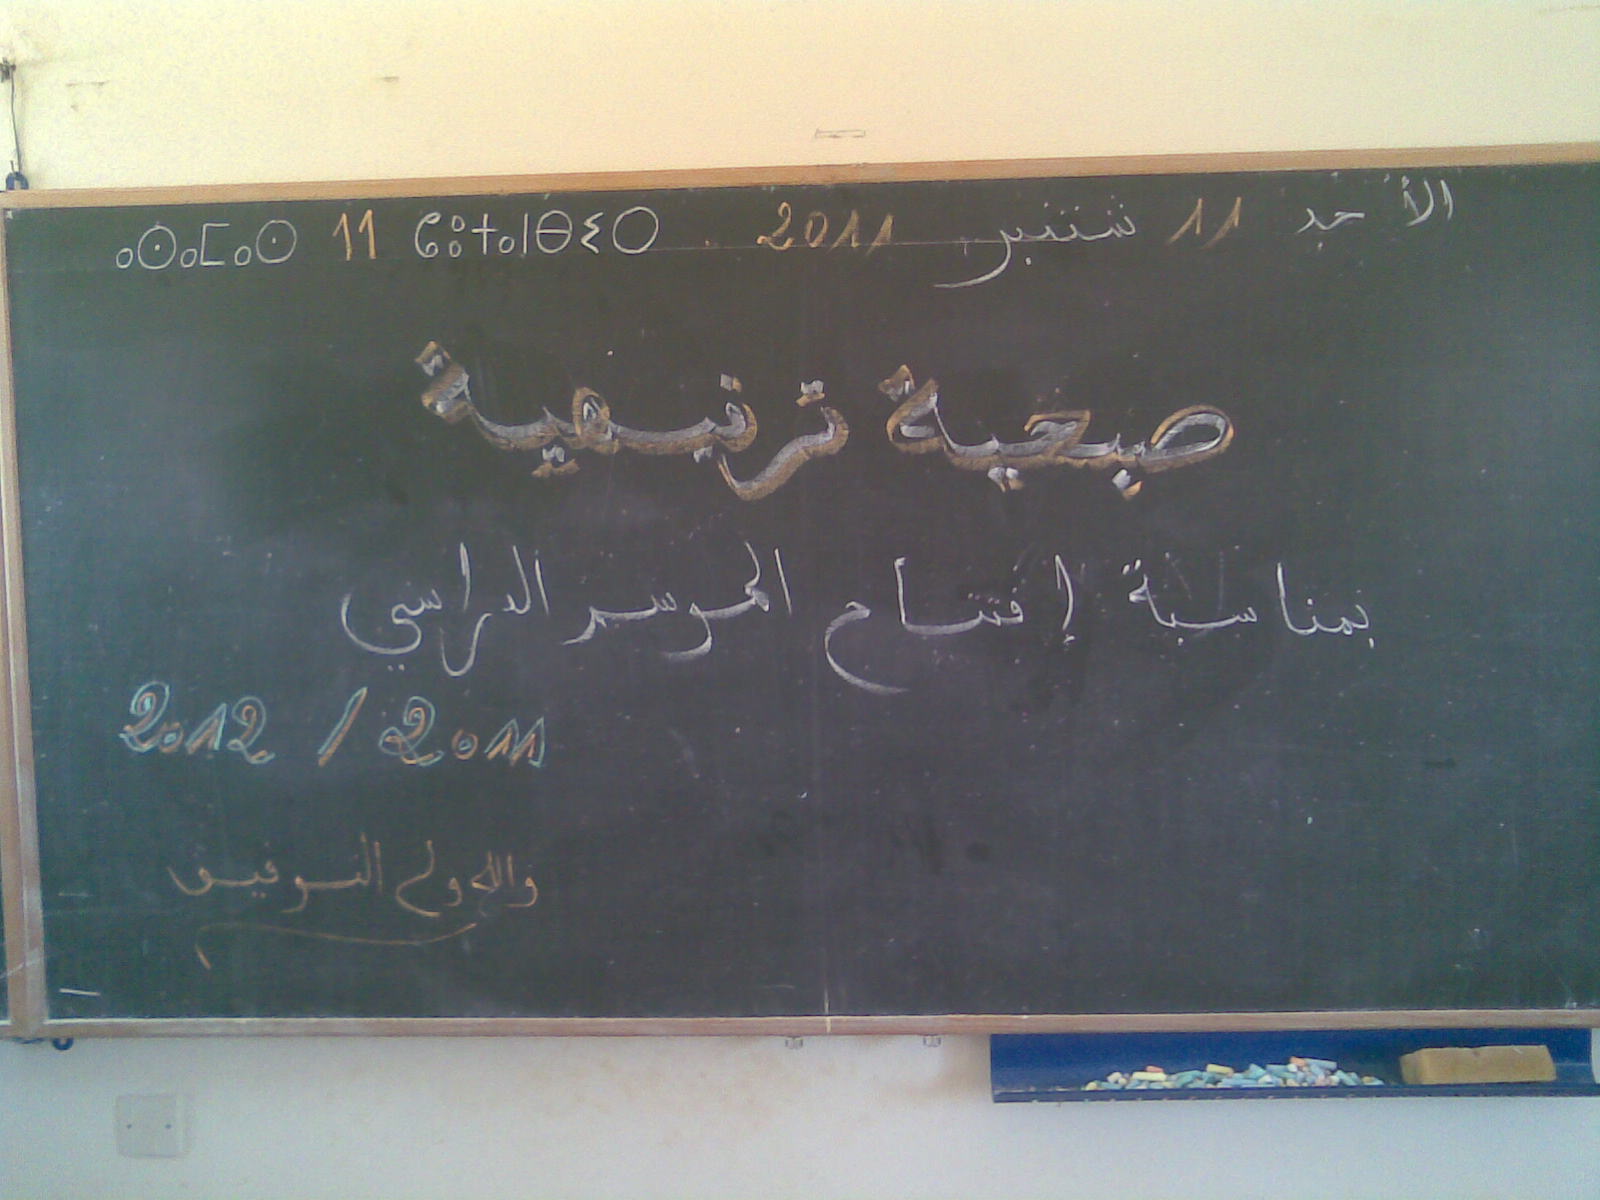 الأحد 11 شتنبر 2011
ⴰⵙⴰⵎⴰⵙ 11 ⵛⵓⵜⴰⵏⴱⵉⵔ
صبحية ترفيهية
بمناسبة إفتتاح الموسم الدراسي
2011 / 2012
والله ولي التوفيق